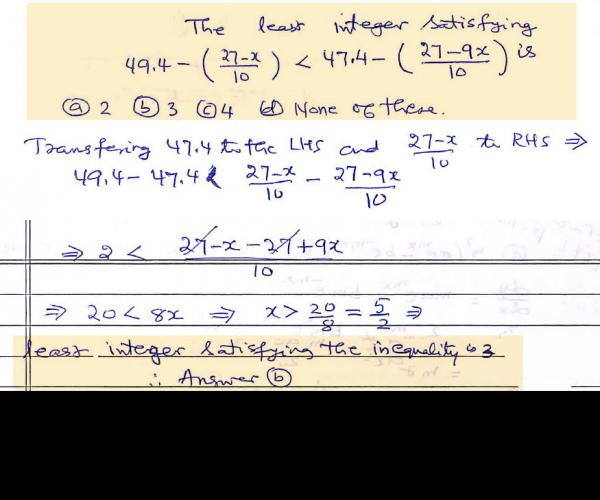 The least integer satisfying
49.4 - (27-x/10) < 47.4 - (27-9x/10) is
(a) 2 (b) 3 (c) 4 (d) None of these.
Transfering 47.4 to the LHS and 27-x/10 to RHS ⇒
49.4 - 47.4 < 27-x/10 - 27-9x/10
⇒ 2 < 27-x-27+9x/10
⇒ 20 < 8x ⇒ x > 20/8 = 5/2 ⇒
least integer satisfying the inequality is 3
∴ Answer (b)